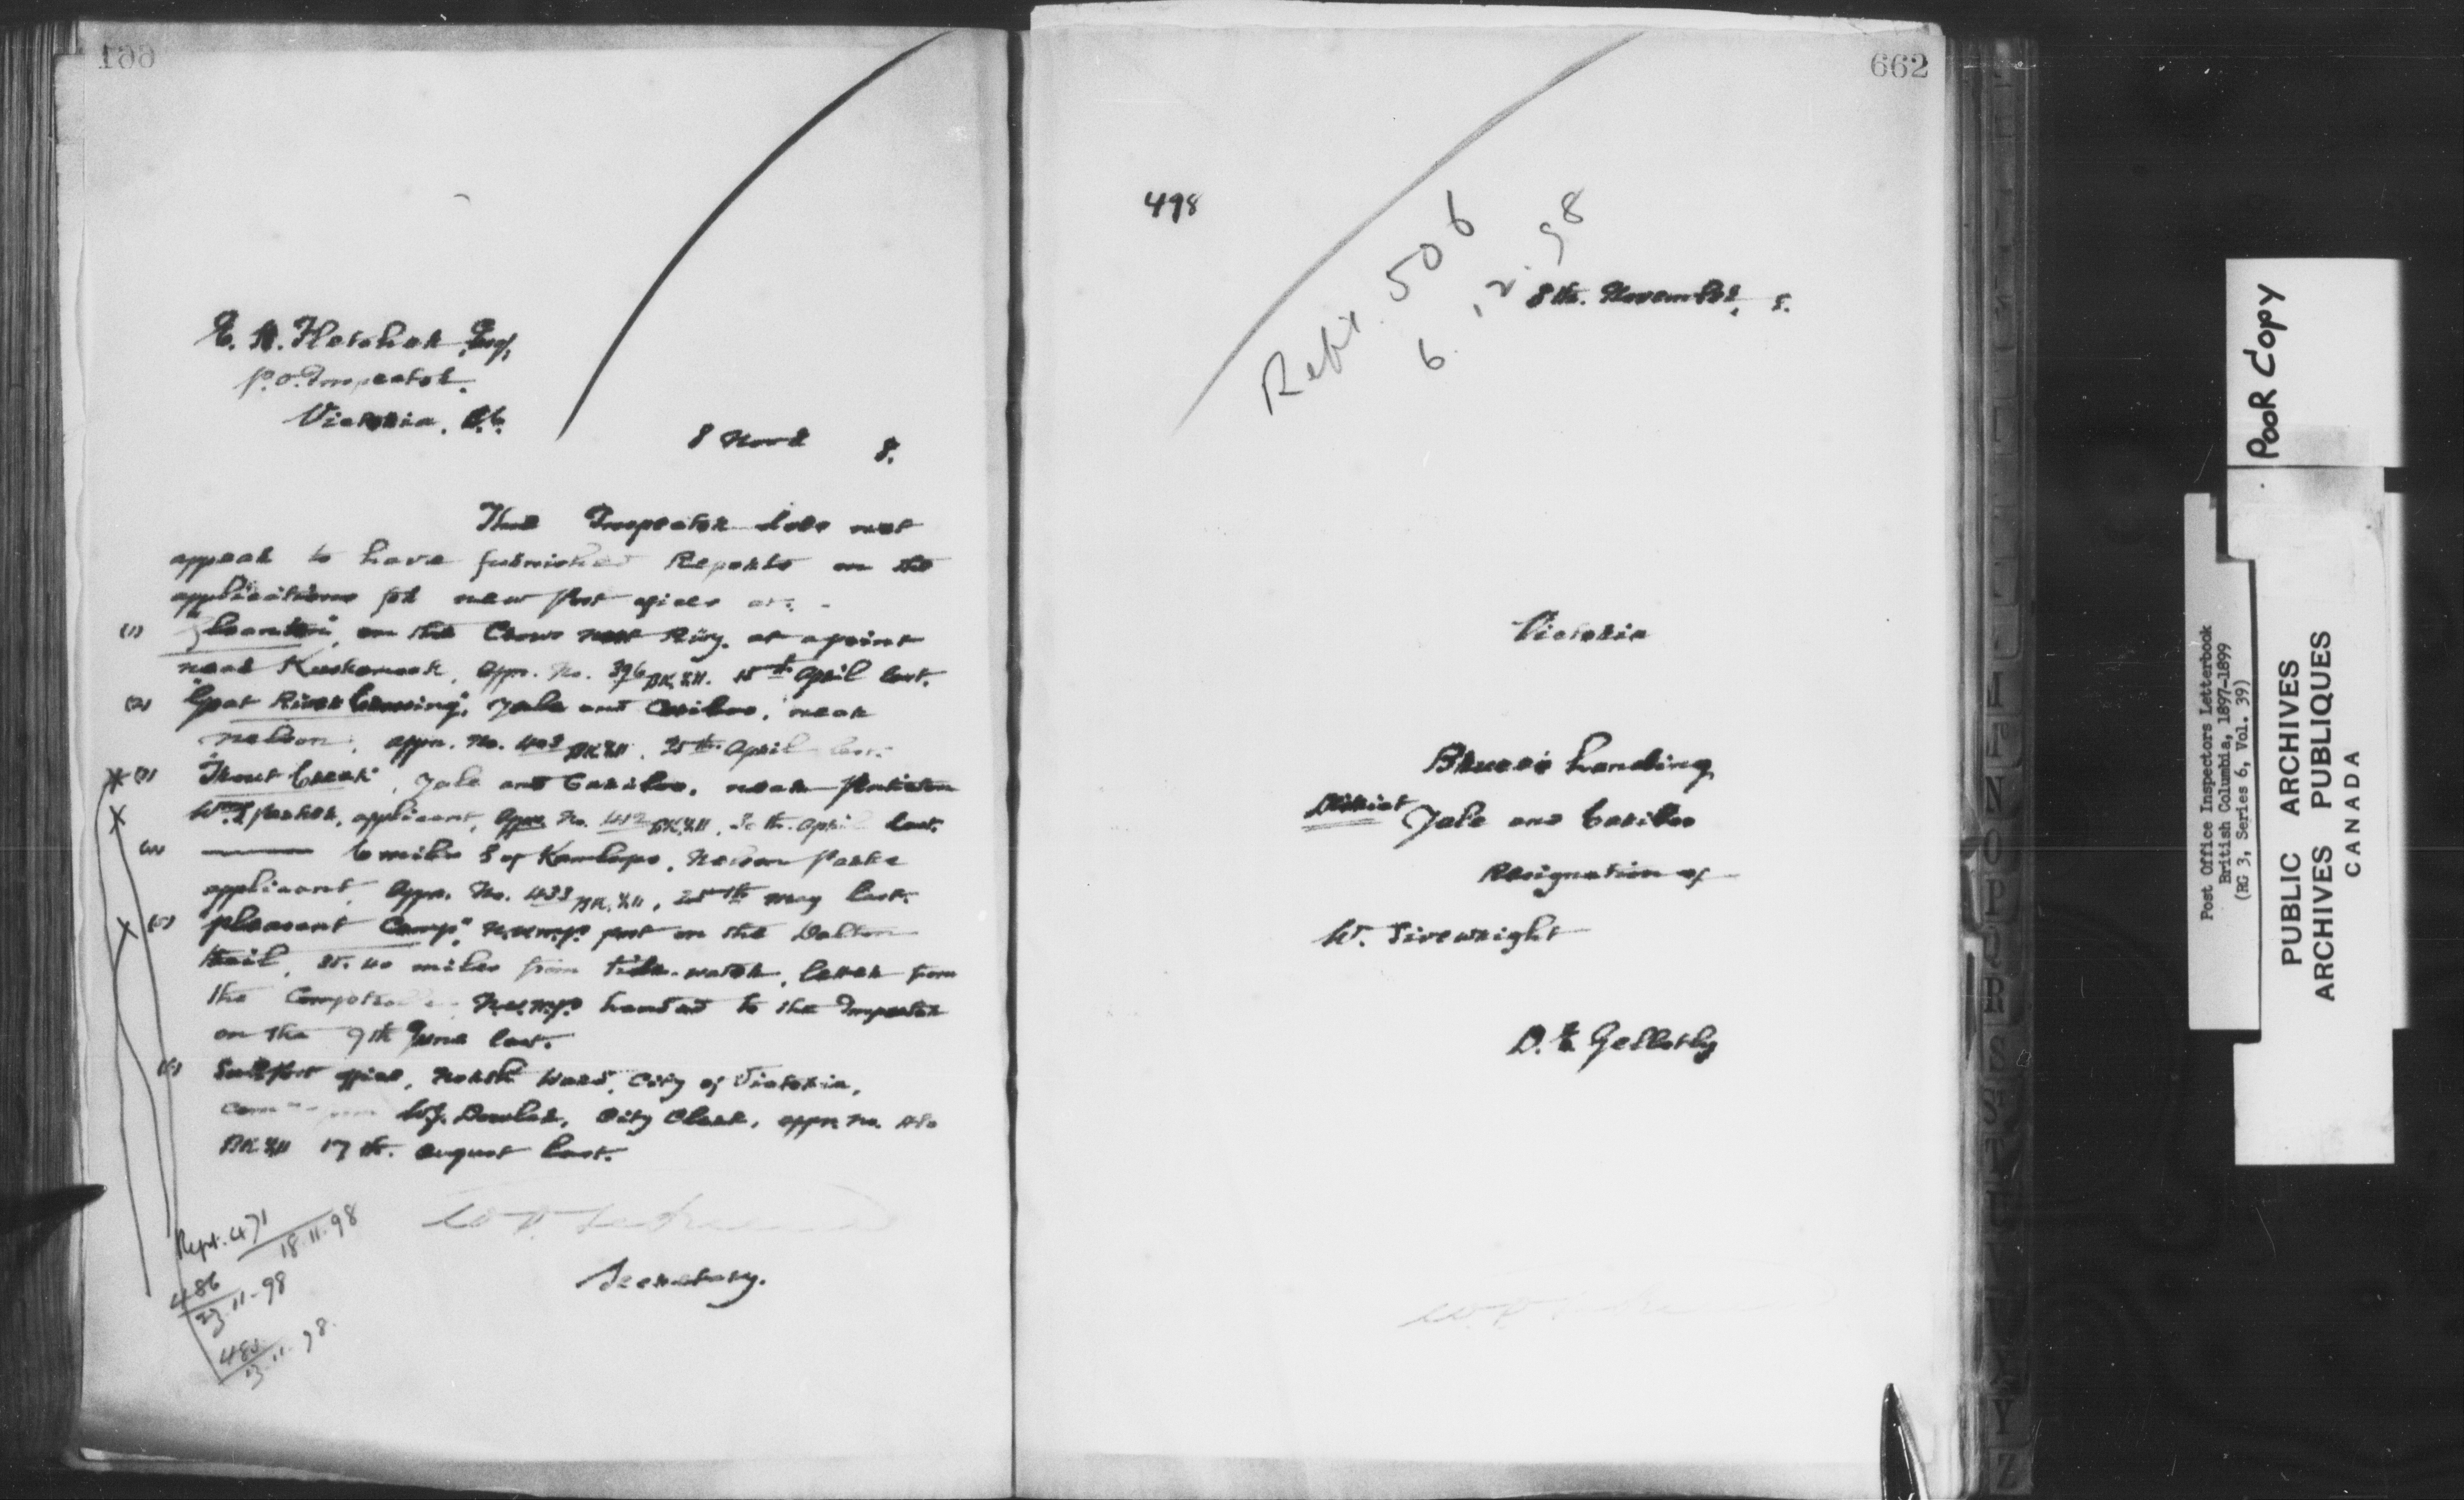 661
E. H. Fletcher, Esq,
P.O. Inspector.
Victoria, B.C.
8 Novr 8.
The Inspector does not
appear to have furnished Reports on the
applications for new Post offices at: -
(1) on the Crows Nest Rwy. at a point
near Kuskonook, Appn. No. 396 BK.XII. 15th April last.
(2) "Goat River Crossing", Yale and Cariboo, near
Nelson, appn. No. 403 BK XII. 25th April last.
(3) "Trout Creek", Yale and Cariboo, near Penticton
applicant, Appn. No. 412 BK.XII, 30th. April last.
(4) 6 miles S of Kamloops, Nelson
applicant, Appn. No. 433 BK.XII, 25th May last.
(5) "Pleasant Camp", N.W.M.P. post on the Dalton
trail, 35.40 miles from tide-water, letter from
the N.W.M.P. handed to the Inspector
on the 9th June last.
(6) Sub Post office, North Ward, City of Victoria,
W.J. Dowler, City Clerk, appn. no.
BK XII 17th. August last.
Secretary.
Rept. 471
18.11.98
486
23-11-98
485
23-11-98.
662
498
Rept. 506
6.12.98
8th. November, 8.
Victoria
Landing
District Yale and Cariboo
Resignation of
W. Sivewright
D. E. Gellatly
A
B
N
O
P
R
S
ST
T
V
Y
Z
POOR COPY
Post Office Inspectors Letterbook
British Columbia, 1897-1899
(RG 3, Series 6, Vol. 39)
PUBLIC ARCHIVES
ARCHIVES PUBLIQUES
CANADA